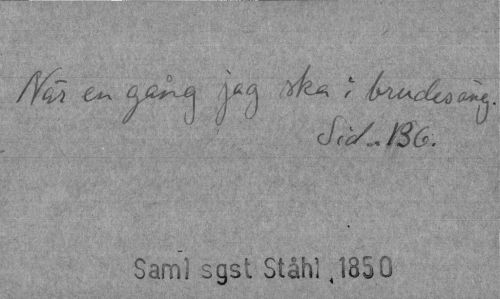 När en gång jag ska i brudesäng.
Sid. 136.
Saml sgst Ståhl, 1850